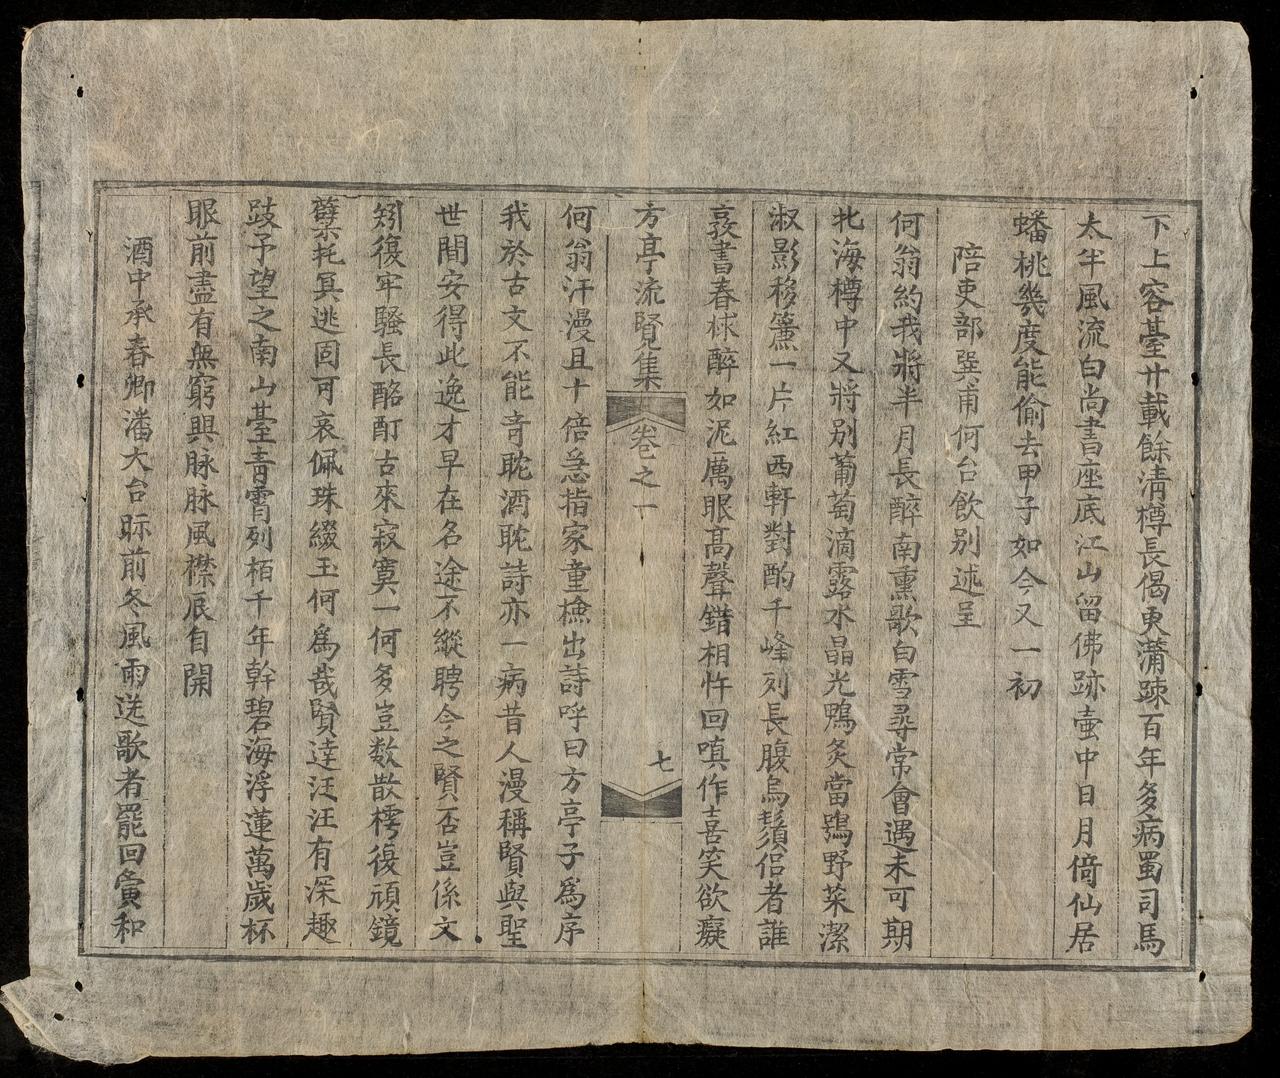 下上容臺廿載餘清樽長偈東蒲疎百年多病蜀司馬
太半風流白尚書座底江山留佛跡壷中日月倚仙居
蟠桃幾度能偷去甲子如今又一初
陪吏部巽甫何台飲别述呈
何翁約我將半月長醉南熏歌白雪尋常會遇未可期
北海樽中又將别葡萄滴露水晶光鴨炙當鴞野菜潔
淑影移簾一片紅西軒對酌千峰列長腹烏鬚侣者誰
裵書春梂醉如泥厲眼高聲錯相忤回嗔作喜笑欲癡
方亭流賢集
卷之一
七
何翁汗漫且十倍急指家童撿出詩呼曰方亭子爲序
我於古文不能竒耽酒耽詩亦一病昔人漫稱賢與聖
世間安得此逸才早在名途不縱騁今之賢否豈係文
矧復牢騷長酩酊古來寂寞一何多豈数散樗復頑鏡
蘖秏冥逃固可哀佩珠綴玉何爲哉賢逹汪汪有深趣
跂予望之南山臺青霄列栢千年幹碧海浮蓮萬歲杯
眼前盡有無窮興脉脉風襟辰自開
酒中承春卿潘大台眎前冬風雨送歌者罷回衾和